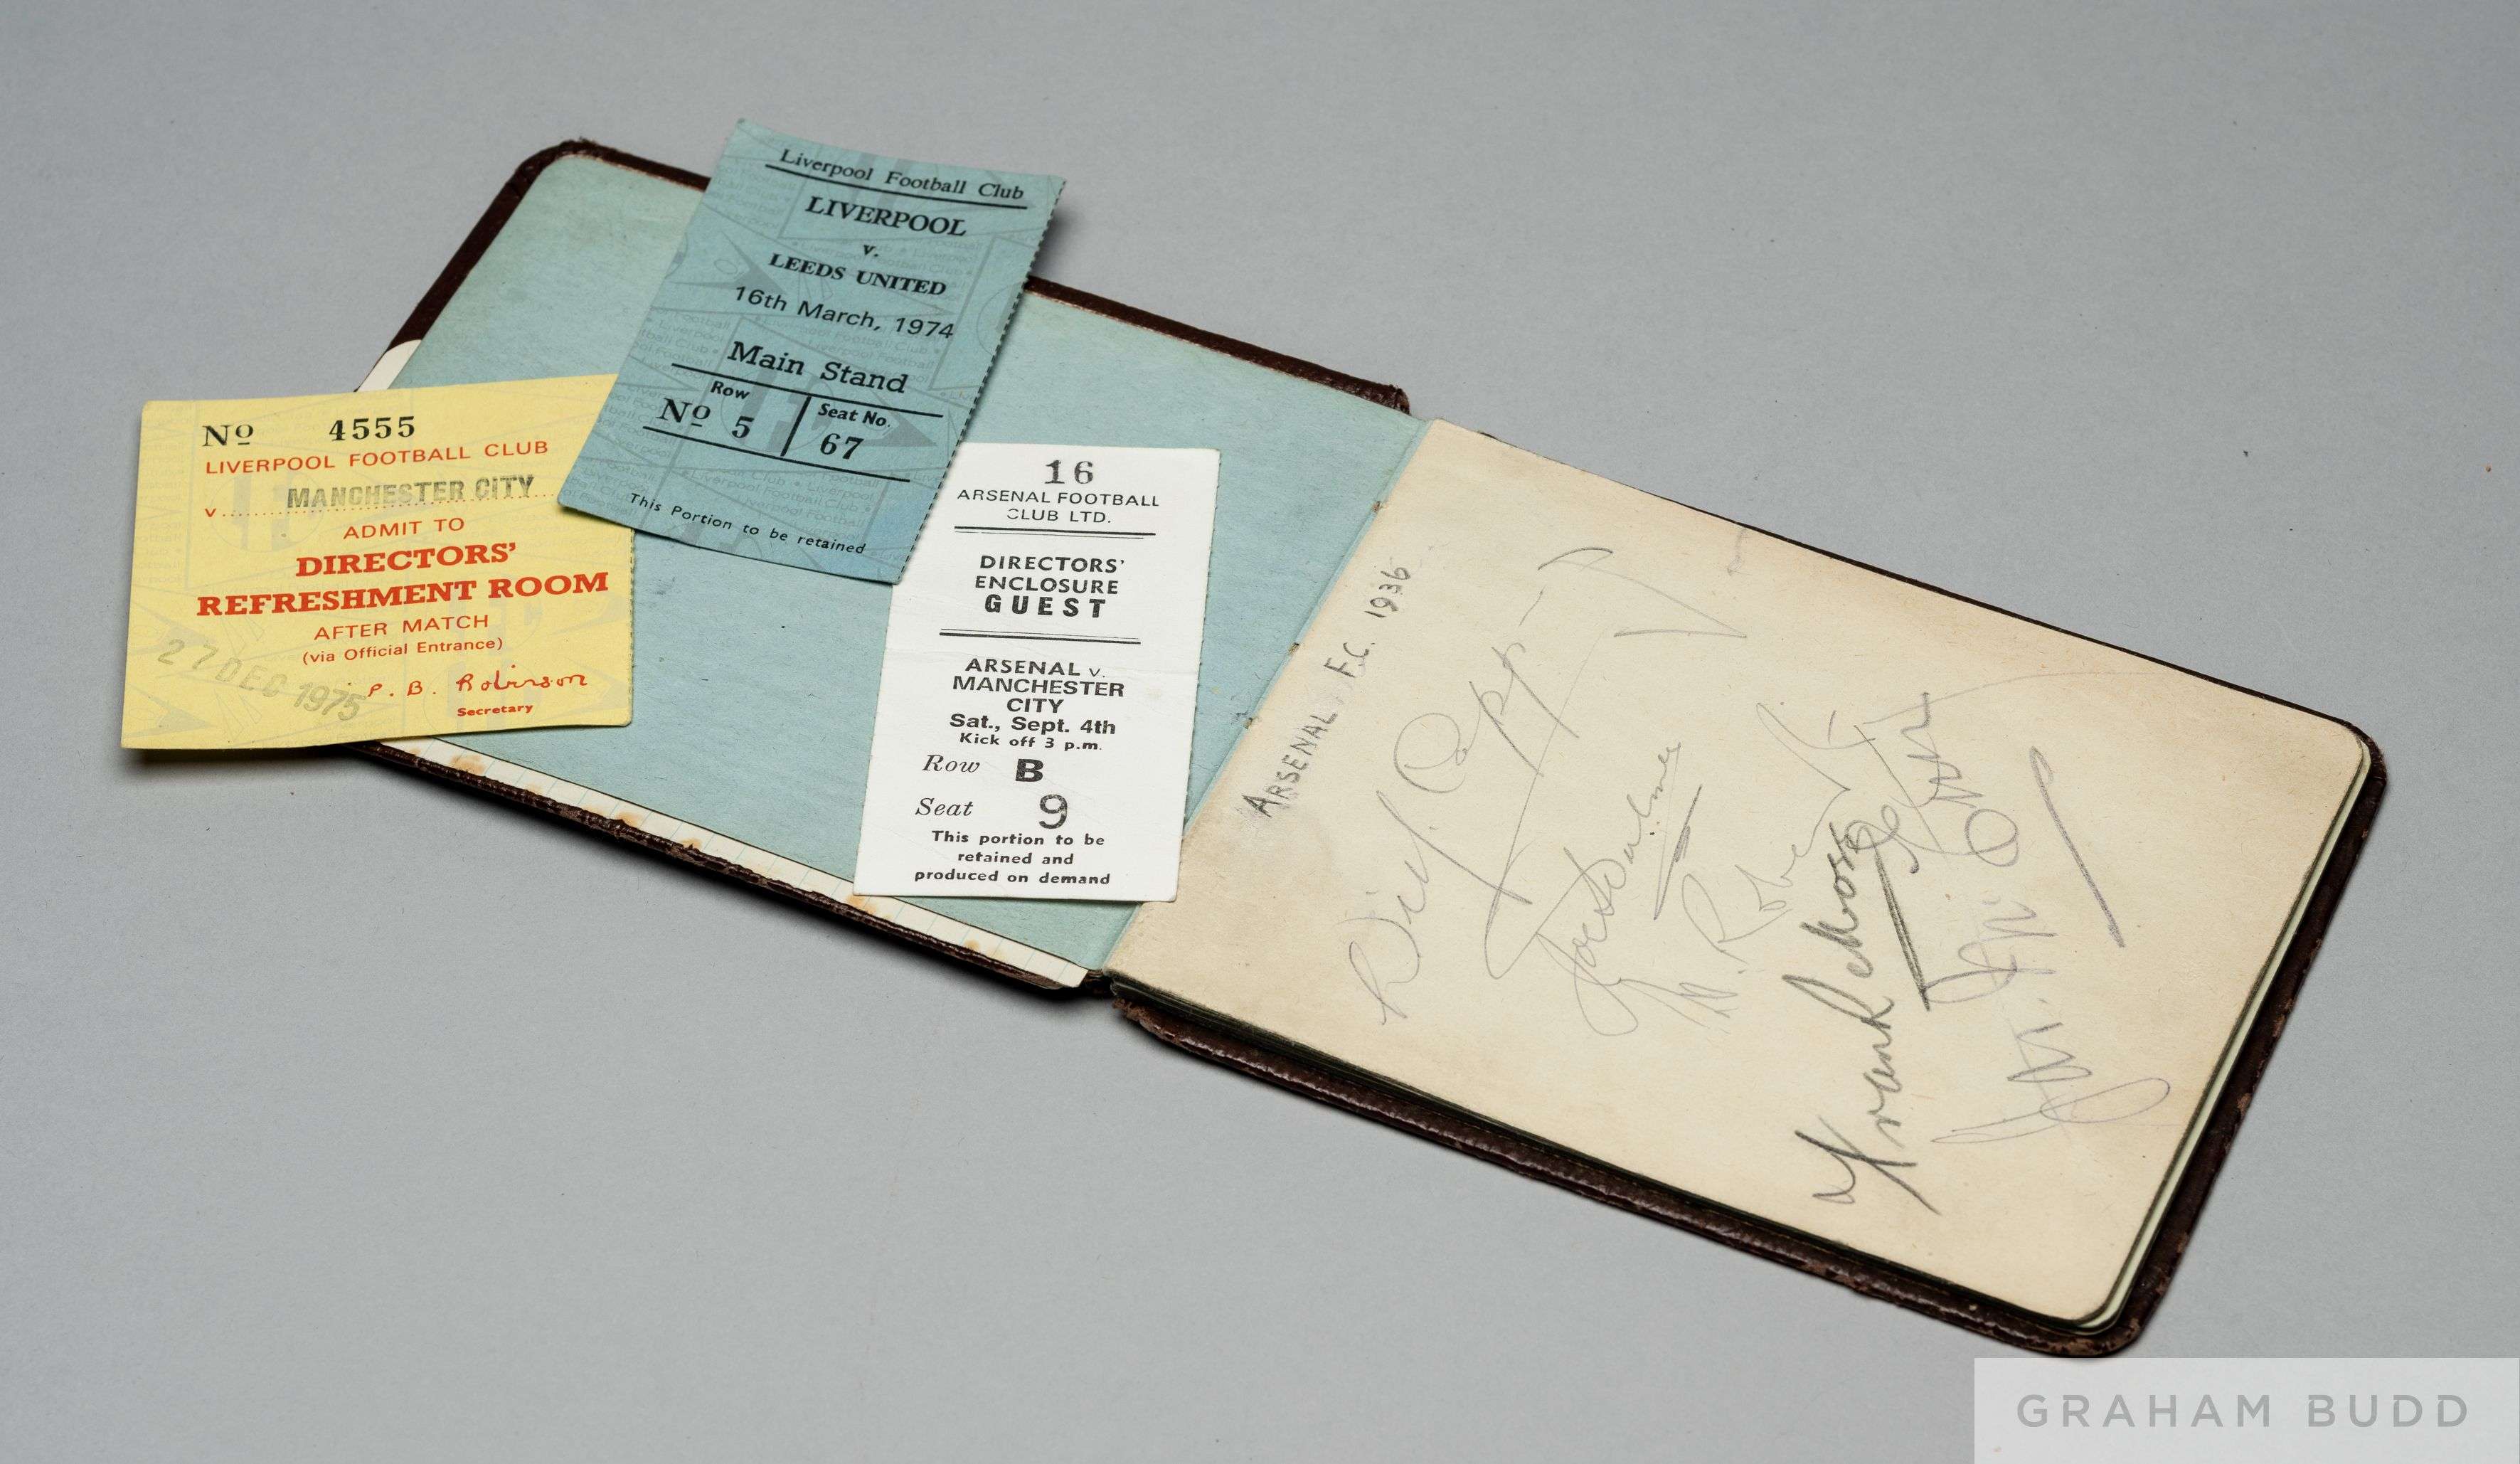 No 4555
LIVERPOOL FOOTBALL CLUB
v. MANCHESTER CITY
ADMIT TO
DIRECTORS'
REFRESHMENT ROOM
AFTER MATCH
(via Official Entrance)
27 DEC 1975
P. B. Robinson
Secretary
Liverpool Football Club
LIVERPOOL
v.
LEEDS UNITED
16th March, 1974
Main Stand
Row
No 5
Seat No.
67
This Portion to be retained
16
ARSENAL FOOTBALL
CLUB LTD.
DIRECTORS'
ENCLOSURE
GUEST
ARSENAL v.
MANCHESTER
CITY
Sat., Sept. 4th
Kick off 3 p.m.
Row B
Seat 9
This portion to be
retained and
produced on demand
ARSENAL F.C. 1936
Frank Moss
GRAHAM BUDD